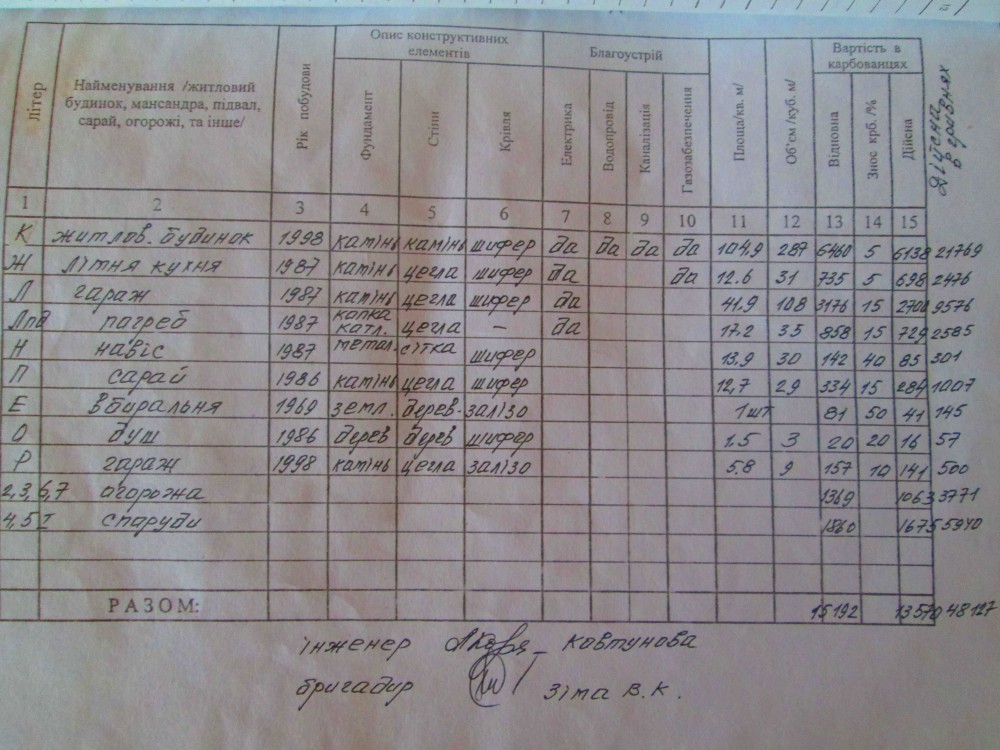 Літер Найменування /житловий будинок, мансандра, підвал, сарай, огорожі, та інше/ Рік побудови Опис конструктивних елементів Благоустрій Площа/кв. м/ Об'єм /куб. м/ Вартість в карбованцях Дійсна в гривнях
Фундамент Стіни Крівля Електрика Водопровід Каналізація Газозабезпечення Відновна Знос крб. /% Дійсна
1 2 3 4 5 6 7 8 9 10 11 12 13 14 15
К житлов. будинок 1998 камінь камінь шифер да да да да 104.9 287 6460 5 6138 21769
Ж літня кухня 1987 камінь цегла шифер да да 12.6 31 735 5 698 2476
Л гараж 1987 камінь цегла шифер да 41.9 108 3176 15 2700 9576
Лпд погреб 1987 копка катл. цегла – да 17.2 35 858 15 729 2585
Н навіс 1987 метал. сітка шифер 13,9 30 142 40 85 301
П сарай 1986 камінь цегла шифер 12,7 29 334 15 284 1007
Е вбиральня 1969 земл. дерев. залізо 1 шт 81 50 41 145
О душ 1986 дерев дерев шифер 1.5 3 20 20 16 57
Р гараж 1998 камінь цегла залізо 5.8 9 157 10 141 500
2,3,6,7 огорожа 1369 1063 3771
4,5 I споруди 1860 1675 5940
РАЗОМ: 15192 13570 48127
інженер Ковтунова
бригадир Зіма В.К.